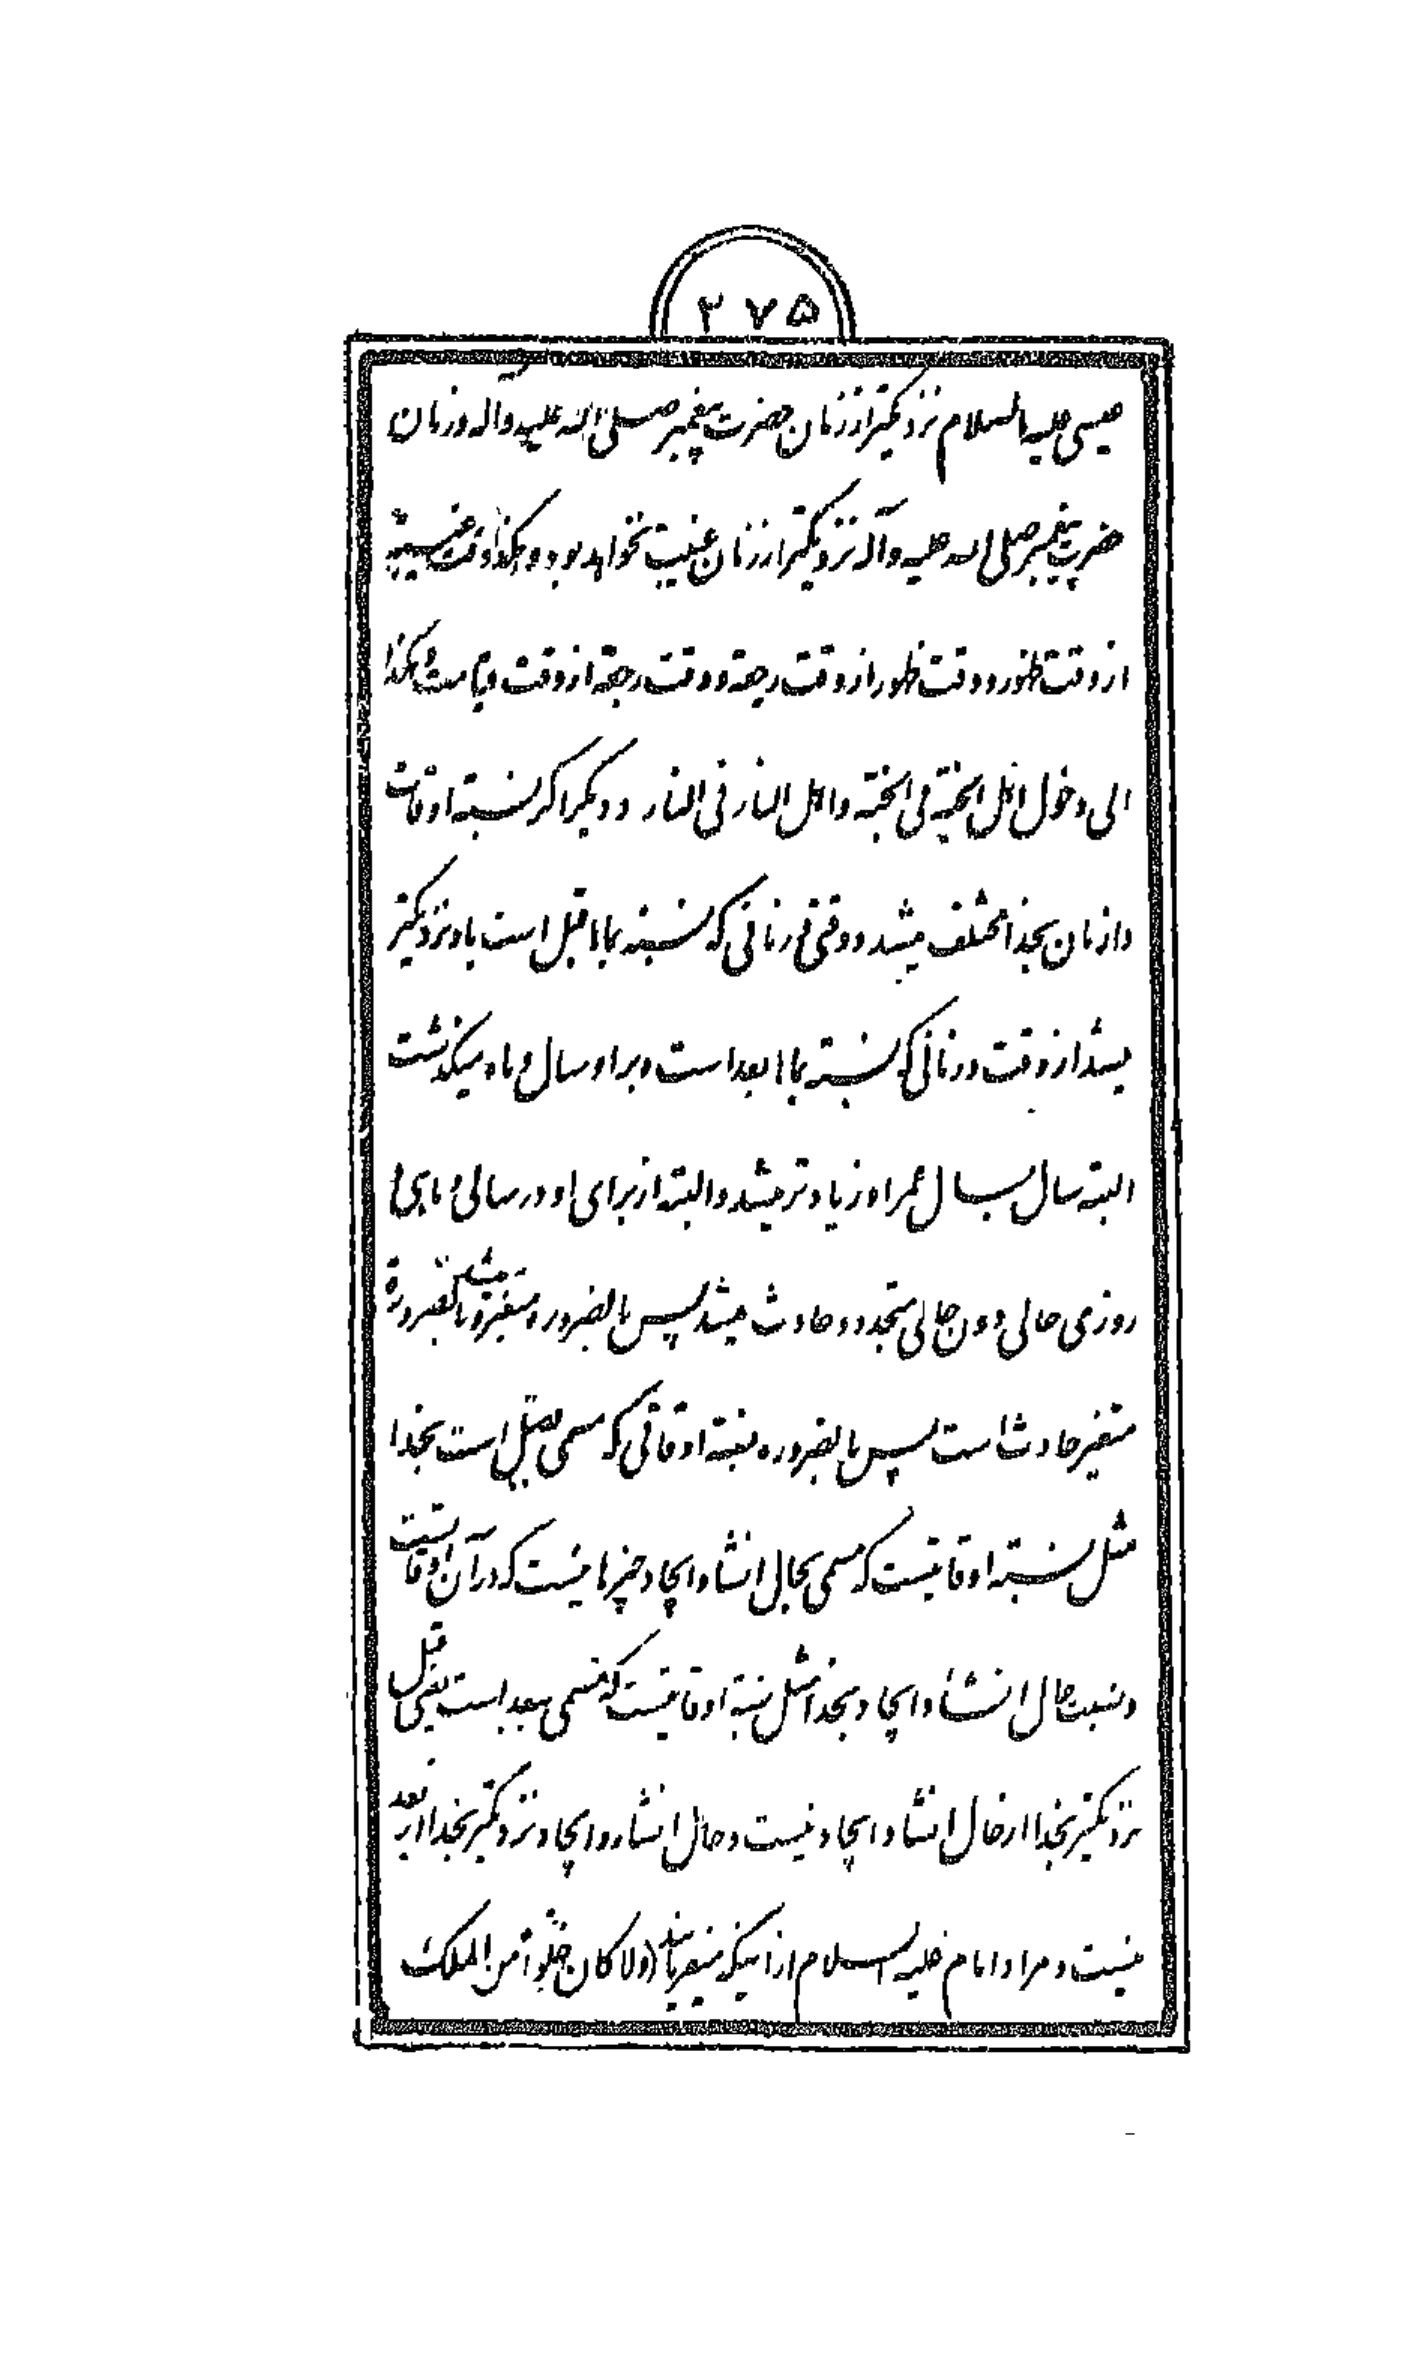 ۲۷۵
عیسی علیه السلام نزدیکتر از زمان حضرت پیغمبر صلی الله علیه و آله و زمان
حضرت پیغمبر صلی الله علیه و آله نزدیکتر از زمان غیبت نخواهد بود و هکذا وقت غیبت
از وقت ظهور و وقت ظهور از وقت رجعة و وقت رجعة از وقت قیامت هکذا
الی دخول اهل الجنة فی الجنة و اهل النار فی النار و دیگر اگر نسبة اوقات
و ازمان بخدا مختلف میشد و وقتی و زمانی که نسبة بما قبل است باو نزدیکتر
میشد از وقت و زمانی که نسبة بما بعد است و بر او سال و ماه میگذشت
البته سال بسال عمر او زیادتر میشد و البته از برای او در سالی و ماهی و
روزی حالی دون حالی متجدد و حادث میشد پس بالضروره متغیر و بالضرورة
متغیر حادث است پس بالضروره نسبة اوقاتی که مسمی بقبل است بخدا
مثل نسبة اوقاتیست که مسمی بحال انشاء و ایجاد چیزهائیست که در آن اوقاتست
و نسبت حال انشاء و ایجاد بخدا مثل نسبة اوقاتیست که مسمی ببعد است یعنی قبل
نزدیکتر بخدا از حال انشاء و ایجاد نیست و حال انشاء و ایجاد نزدیکتر بخدا از بعد
نیست و مراد امام علیه السلام از اینکه میفرمایند (ولا کان خلوا من الملک